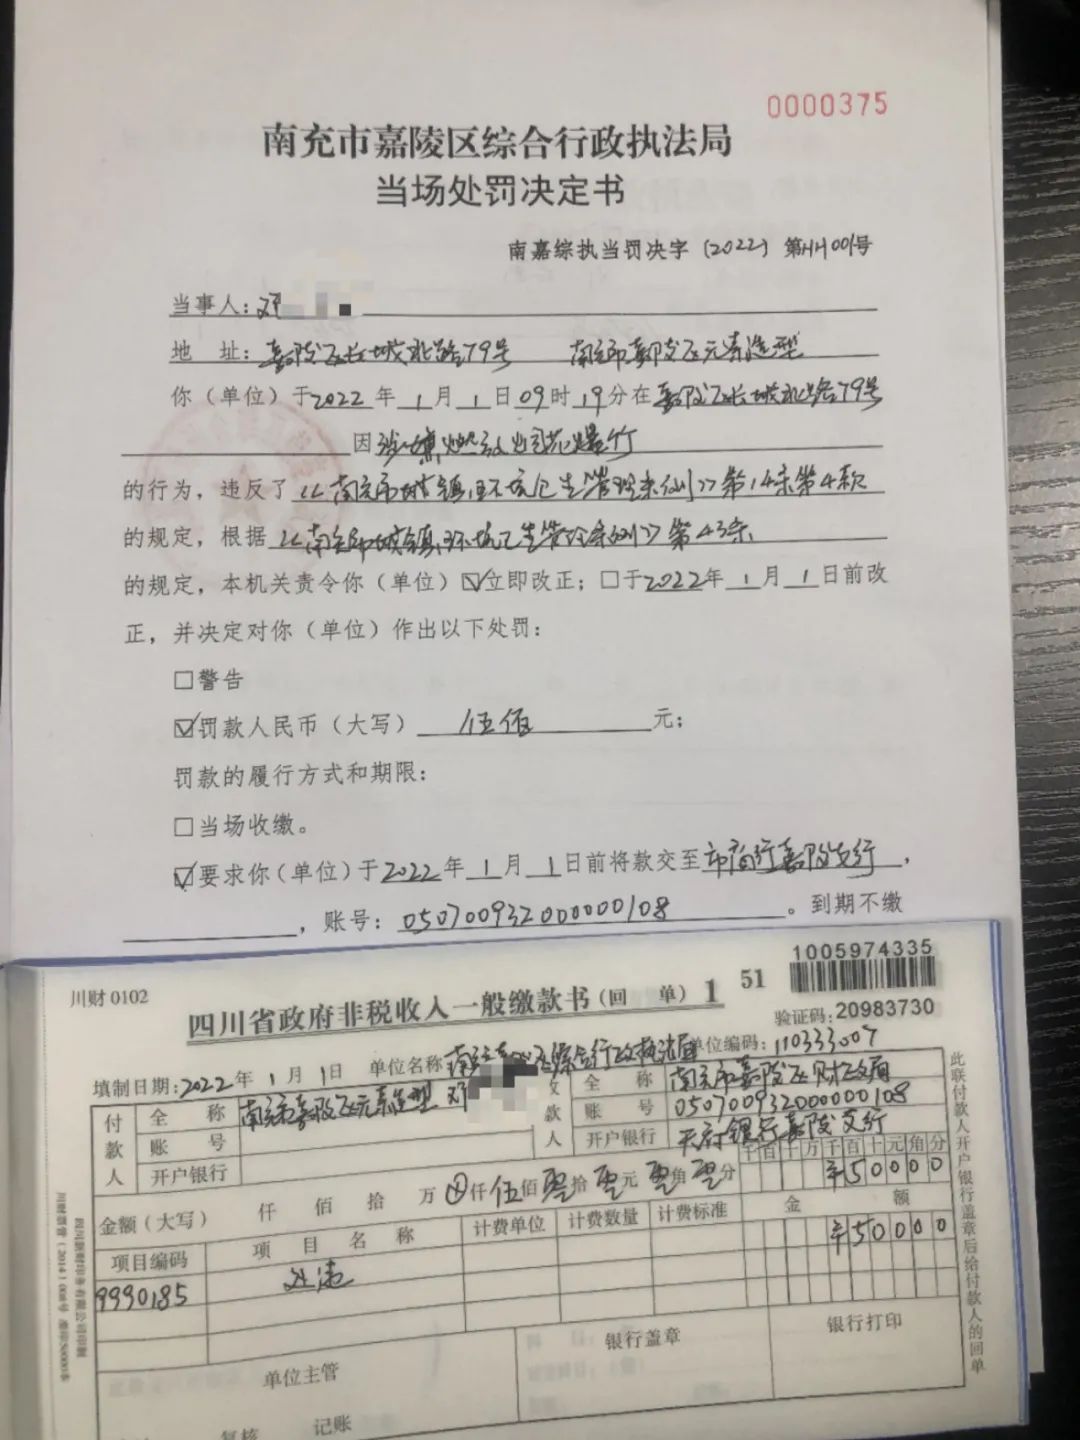 0000375
南充市嘉陵区综合行政执法局
当场处罚决定书
南嘉综执当罚决字〔2022〕第001号
当事人:邓
地 址:嘉陵区长城北路79号 南充市嘉陵区元素造型
你（单位）于2022年1月1日09时19分在嘉陵区长城北路79号
因涉嫌燃放烟花爆竹
的行为，违反了《南充市城镇环境卫生管理条例》第14条第4款
的规定，根据《南充市城镇环境卫生管理条例》第43条
的规定，本机关责令你（单位）☑立即改正；□于2022年1月1日前改
正，并决定对你（单位）作出以下处罚：
□警告
☑罚款人民币（大写）伍佰元；
罚款的履行方式和期限：
□当场收缴。
☑要求你（单位）于2022年1月1日前将款交至市商行嘉陵支行，
，账号：05070093200000​0108。到期不缴
川财 0102
1005974335
四川省政府非税收入一般缴款书（回 单）1 51
验证码:20983730
填制日期:2022年1月1日 单位名称 南充市嘉陵区综合行政执法局 单位编码:110333007
付款人 全 称 南充市嘉陵区元素造型 邓 收款人 全 称 南充市嘉陵区财政局
账 号 账 号 050700932000000108
开户银行 开户银行 天府银行嘉陵支行
金额（大写） 仟 佰 拾 万 ⊕仟伍佰零拾零元零角零分 千百十万千百十元角分 ¥50000
项目编码 项 目 名 称 计费单位 计费数量 计费标准 金 额
9990185 处违 ¥50000
单位主管 银行盖章 银行打印
复核 记账
此联付款人开户银行盖章后给付款人的回单